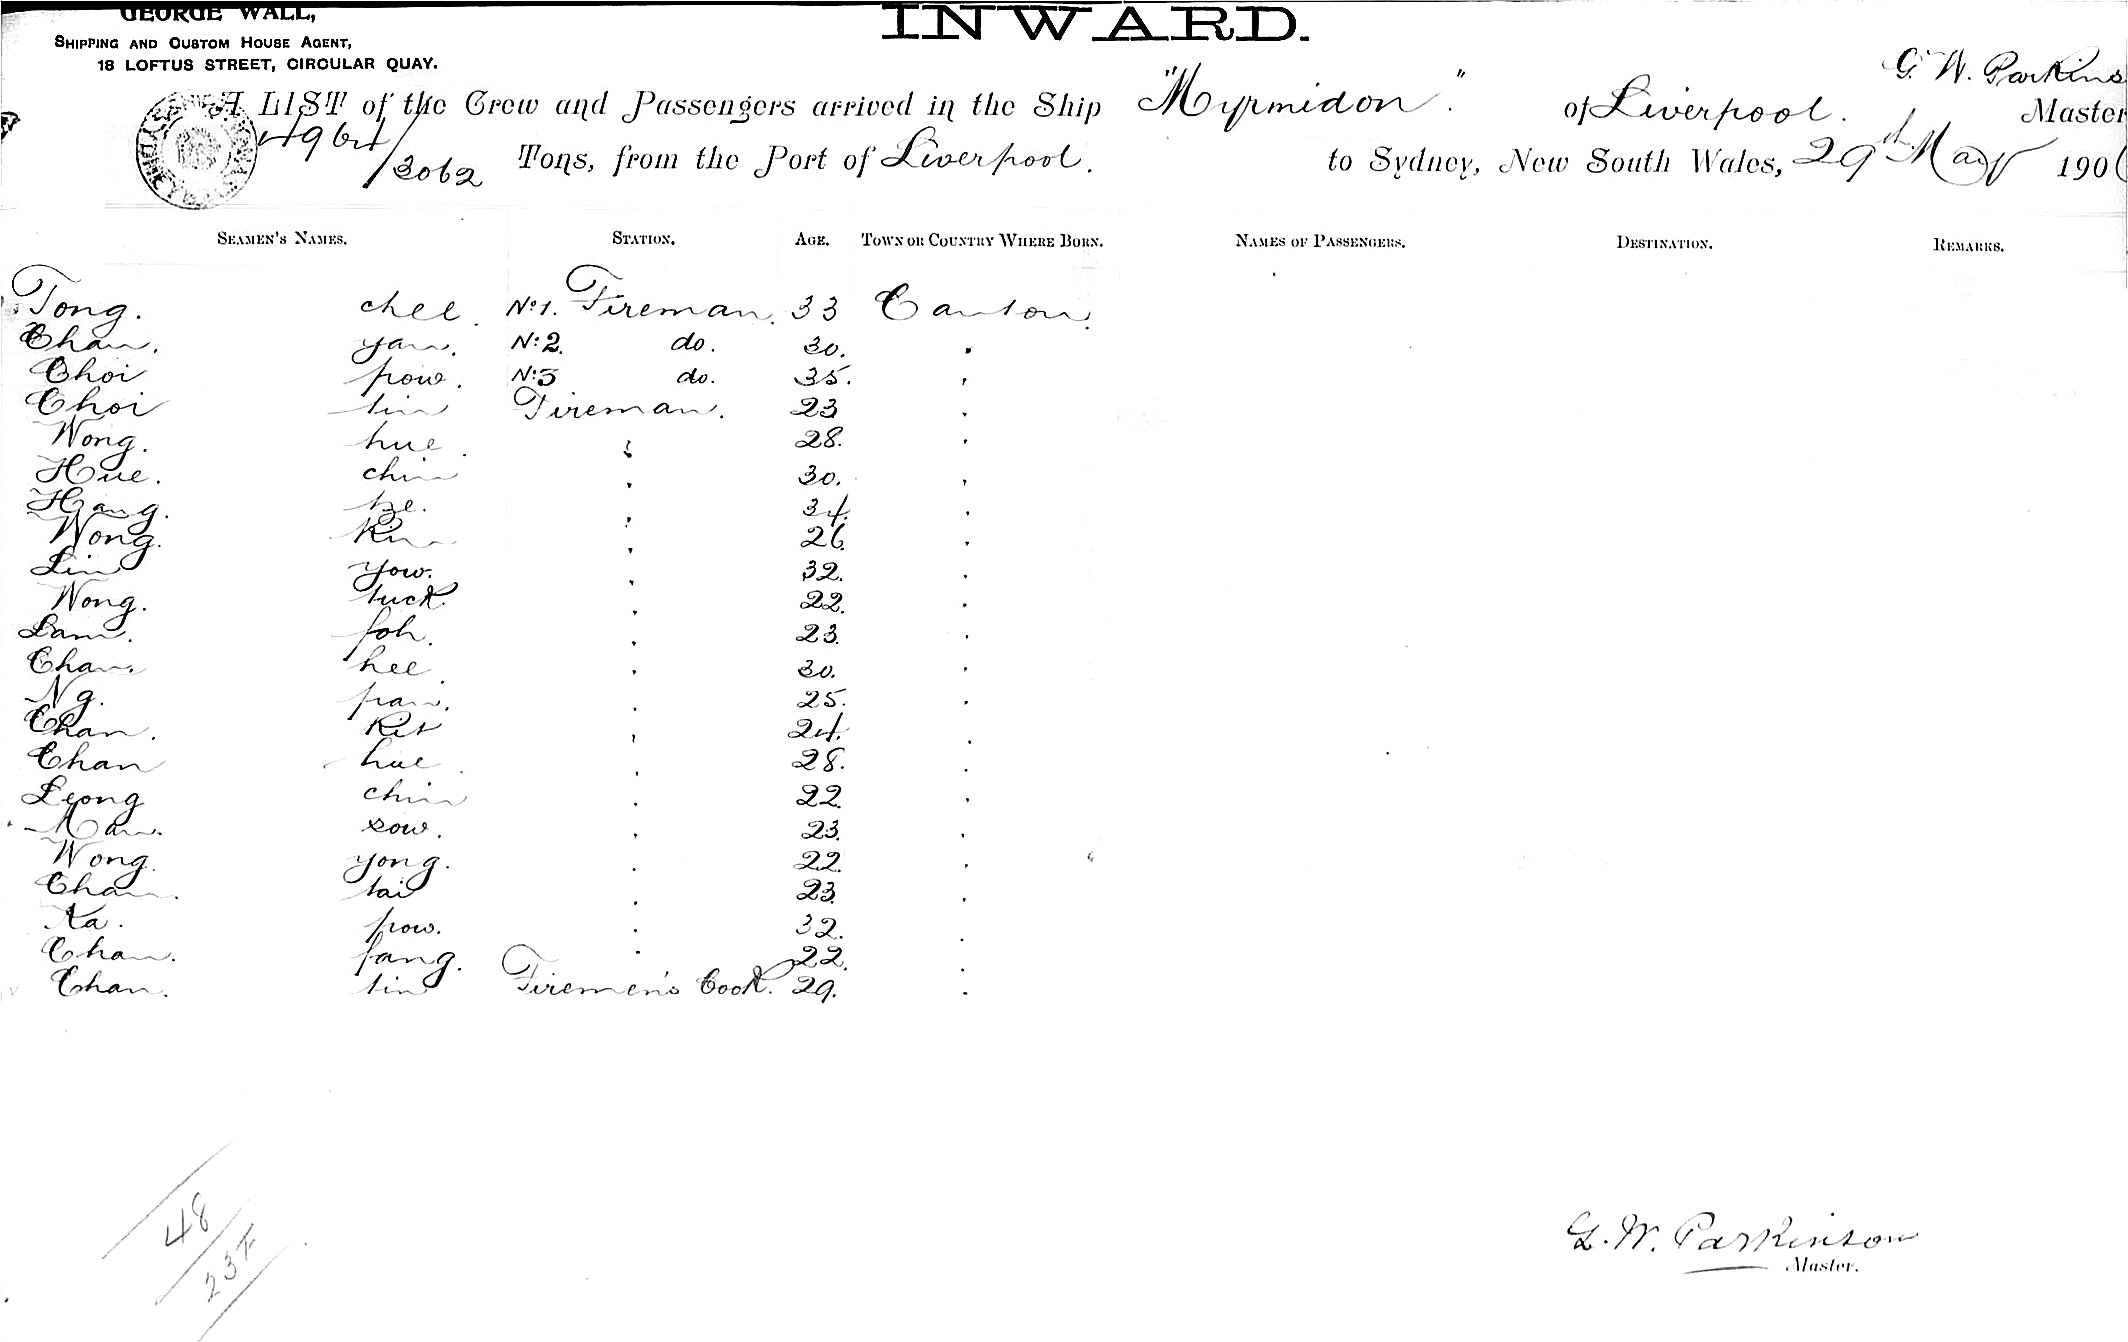 GEORGE WALL,
SHIPPING AND CUSTOM HOUSE AGENT,
18 LOFTUS STREET, CIRCULAR QUAY.
INWARD.
G. W. Parkins
A LIST of the Crew and Passengers arrived in the Ship "Myrmidon". of Liverpool. Master
4964/3062 Tons, from the Port of Liverpool. to Sydney, New South Wales, 29th May 190
SEAMEN'S NAMES. STATION. AGE. TOWN OR COUNTRY WHERE BORN. NAMES OF PASSENGERS. DESTINATION. REMARKS.
Tong. chee. No1. Fireman. 33 Canton.
Chan. yan. No2. do. 30. "
Choi pow. No3 do. 35. "
Choi tin Fireman. 23 "
Wong. hue. " 28. "
Hue. chin " 30. "
Hang. tze. " 34. "
Wong. Kin " 26. "
Lin yow. " 32. "
Wong. tuck. " 22. "
Lam. foh. " 23. "
Chan. hee. " 30. "
Ng. pan. " 25. "
Chan. Kit " 24. "
Chan hue. " 28. "
Leong chin " 22. "
Man. sow. " 23. "
Wong. yong. " 22. "
Chan. tai " 23. "
Ka. pow. " 32. "
Chan. fang. " 22. "
Chan. tin Firemen's Cook. 29. "
48
23
G. W. Parkinson
Master.